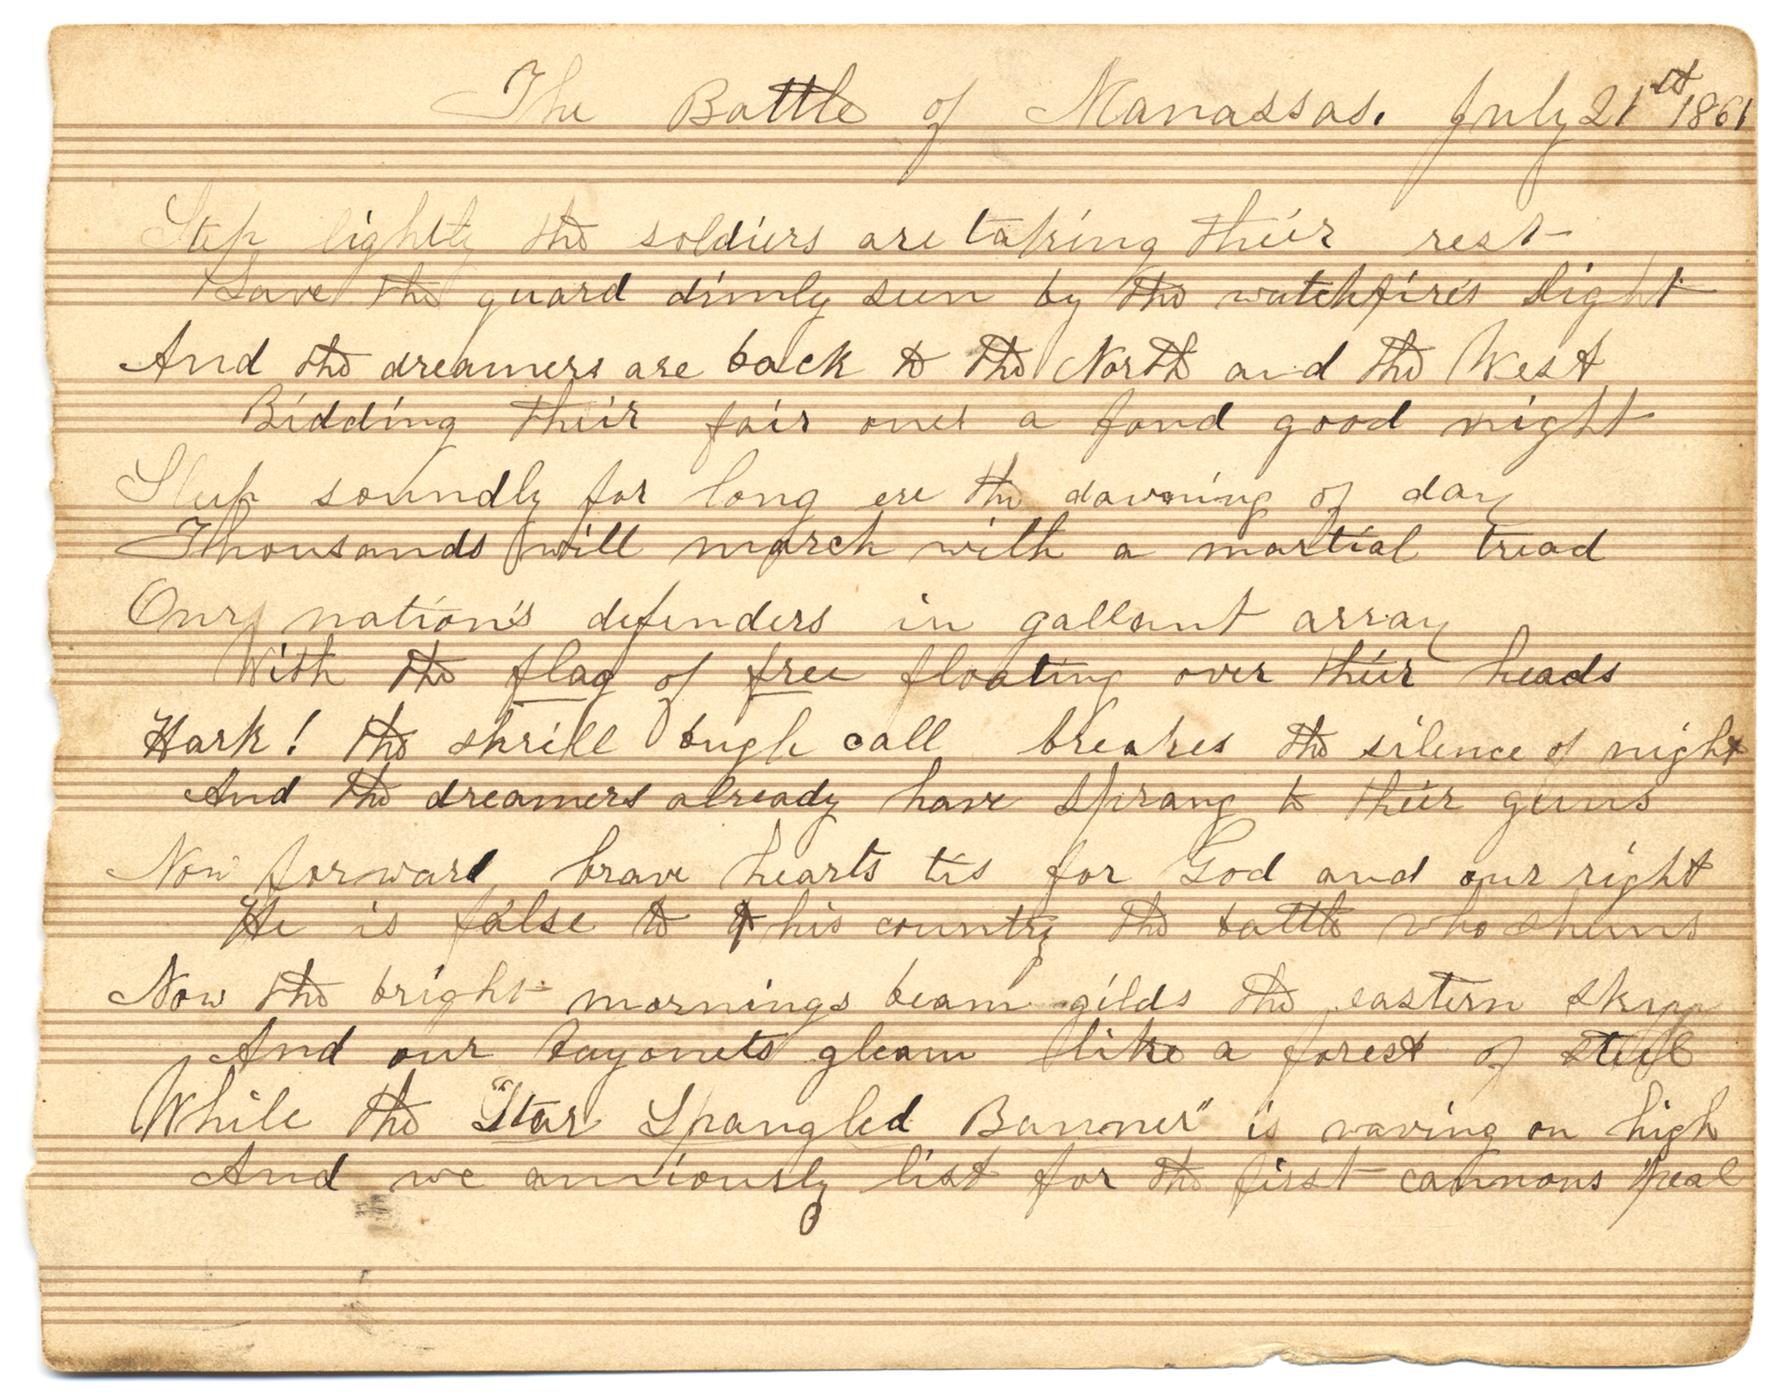 The Battle of Manassas. July 21st 1861
Step lightly the soldiers are taking their rest
Save the guard dimly seen by the watchfires light
And the dreamers are back to the North and the West
Bidding their fair ones a fond good night
Sleep soundly for long ere the dawning of day
Thousands will march with a martial tread
Our nation's defenders in gallant array
With the flag of free floating over their heads
Hark! the shrill bugle call breakes the silence of night
And the dreamers already have sprang to their guns
Now forward brave hearts tis for God and our right
He is false to his country the battle who shuns
Now the bright mornings beam gilds the eastern sky
And our bayonets gleam like a forest of steel
While the "Star Spangled Banner" is waving on high
And we anxiously list for the first cannons peal